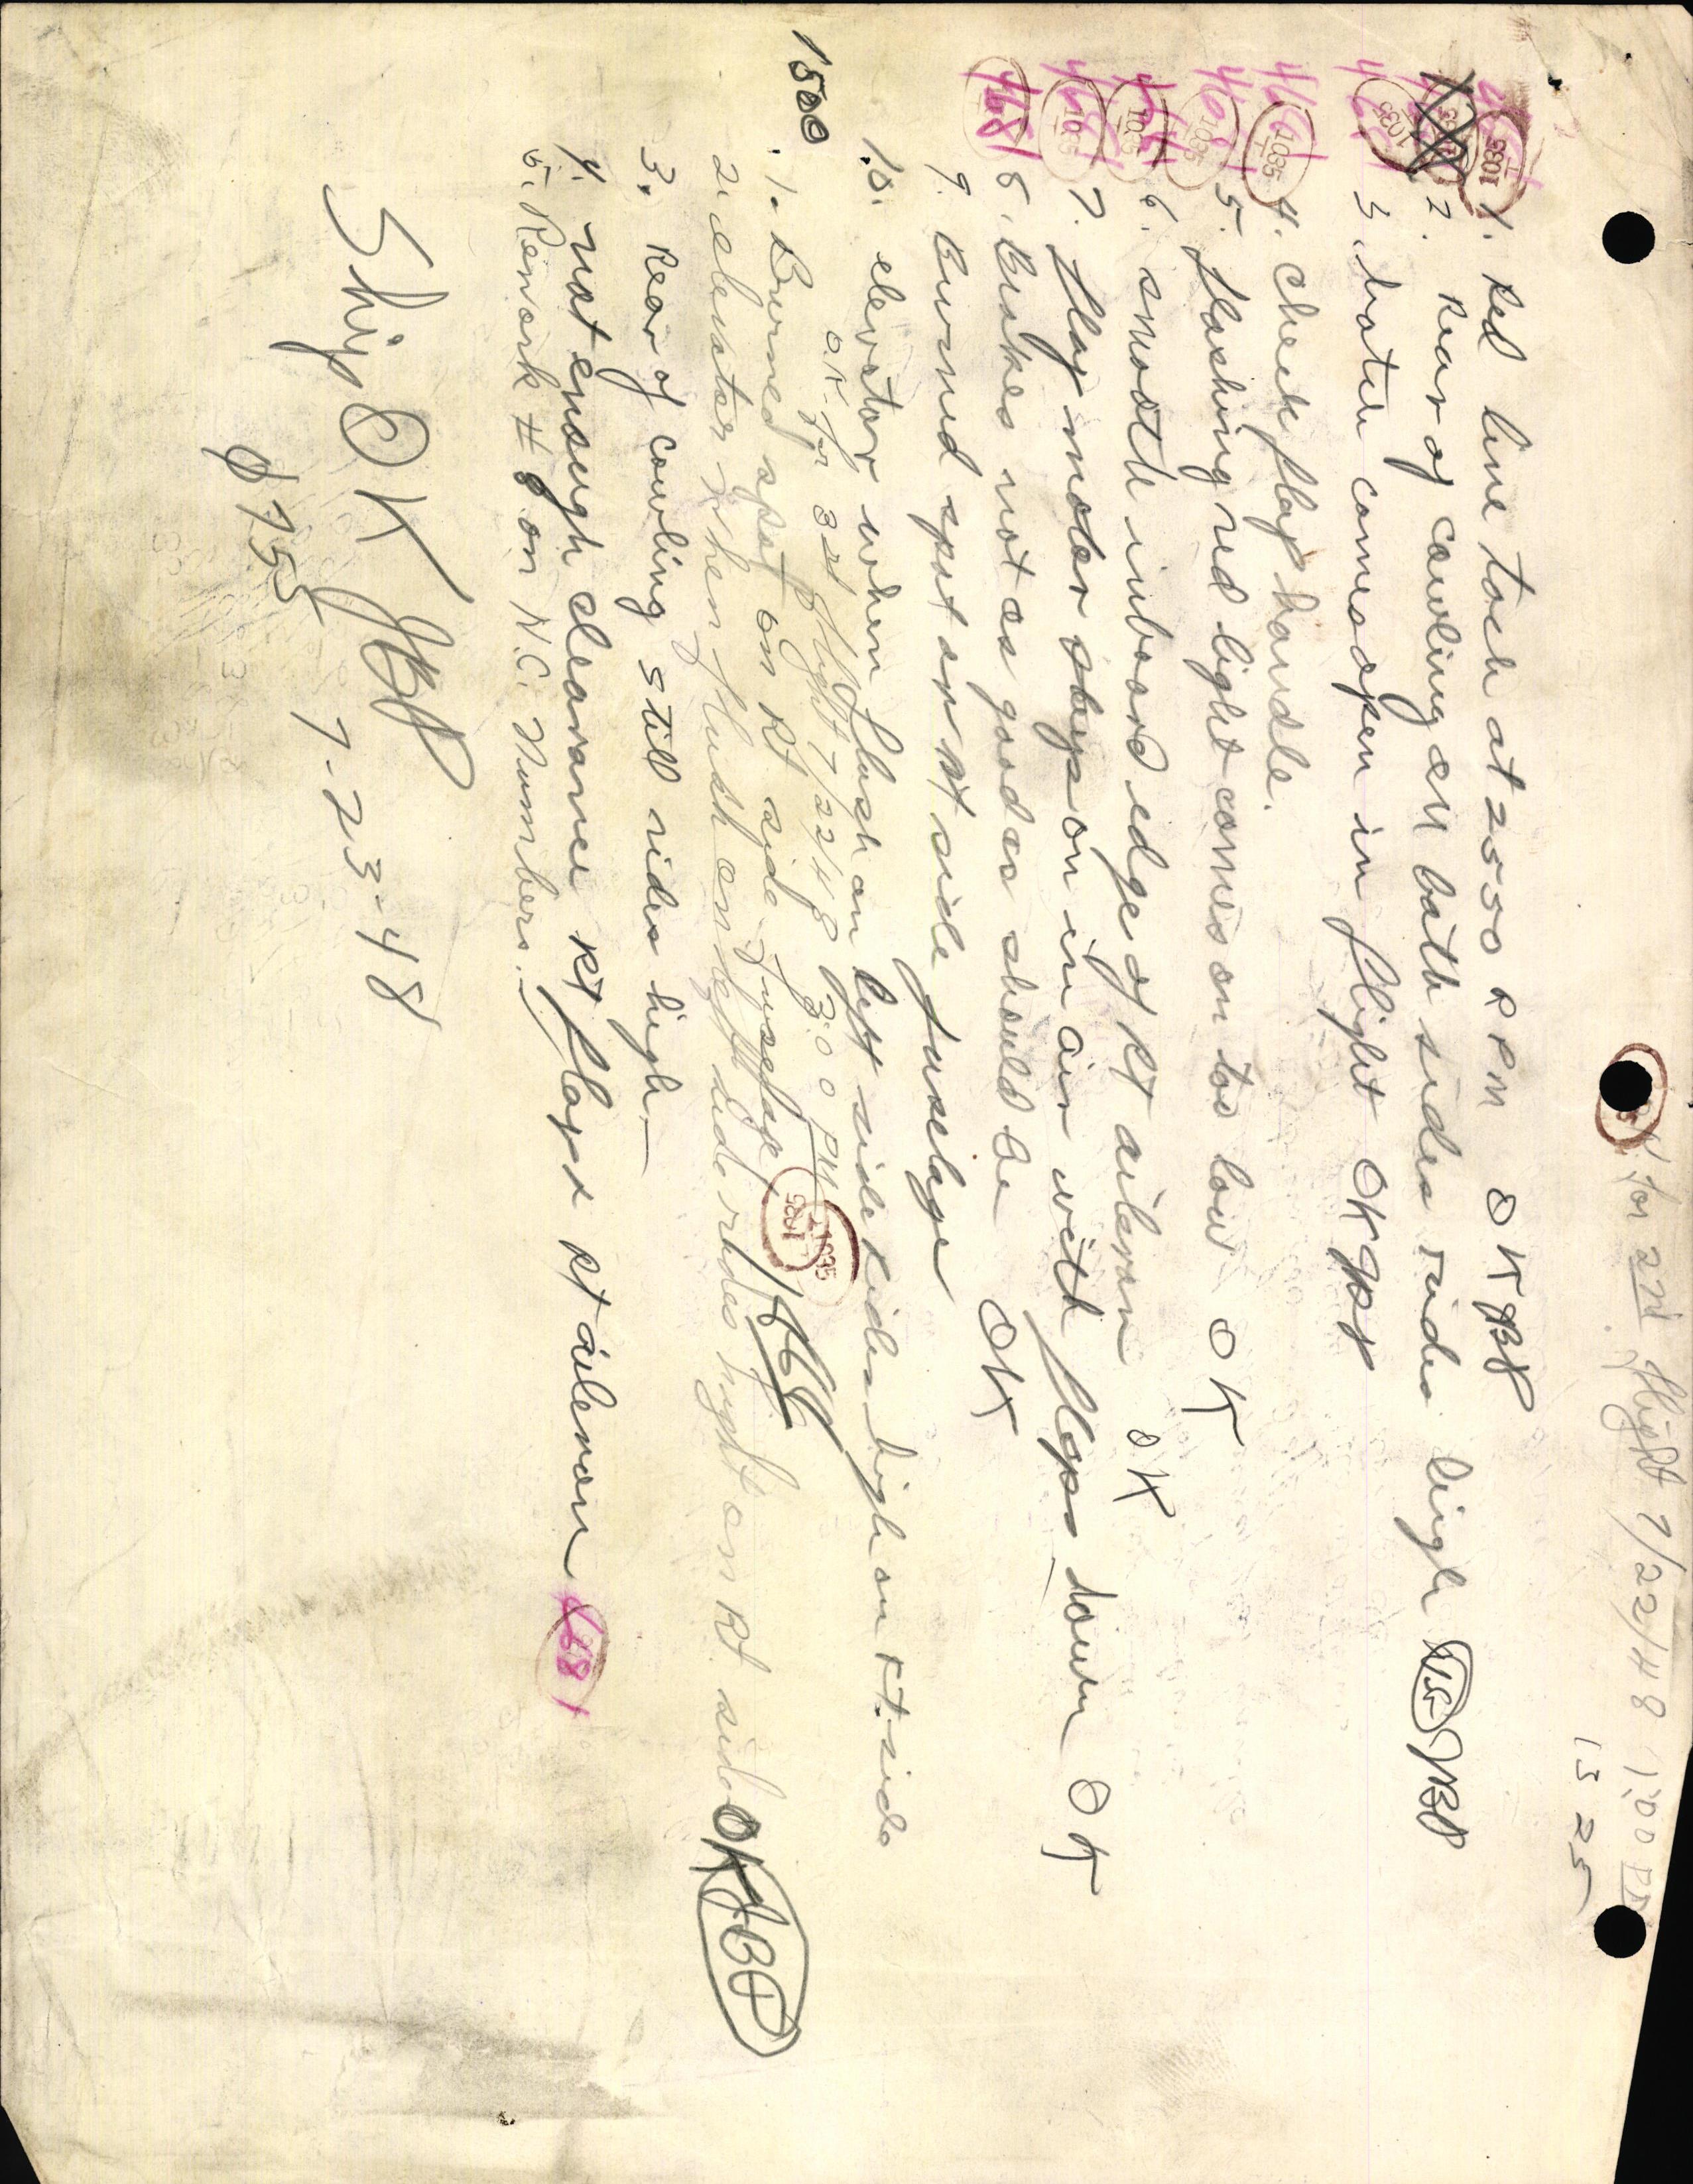 O.K. for 2nd flight 7/22/48 1:00 PM
13 25
1. Red line tach at 2550 RPM OK JBP
2. Rear of cowling on both sides rides high JBP
3 hatch comes open in flight OK JBP
4. check flap handle.
5. flashing red light comes on too low OK
6. smooth inboard edge of Rt aileron OK
7. flap motor stays on in air with flaps down OK
8. Brakes not as good as should be OK
9. Burned spot on Rt side fuselage
10. elevator when flush on left side rides high on rt. side
O.K. for 3rd flight 7/22/48 3:00 PM
1500
1. Burned spot on Rt side fuselage 468
2. elevator when flush on left side rides hight on Rt side OK JBP
3. Rear of cowling still rides high—
4. not enough clearance Rt flap & Rt aileron 468
5. Rework # 8 on N.C. Numbers.
Ship OK JBP
0755 7-23-48
1035
1035
1035
1035
1035
1035
1035
468
1035
1035